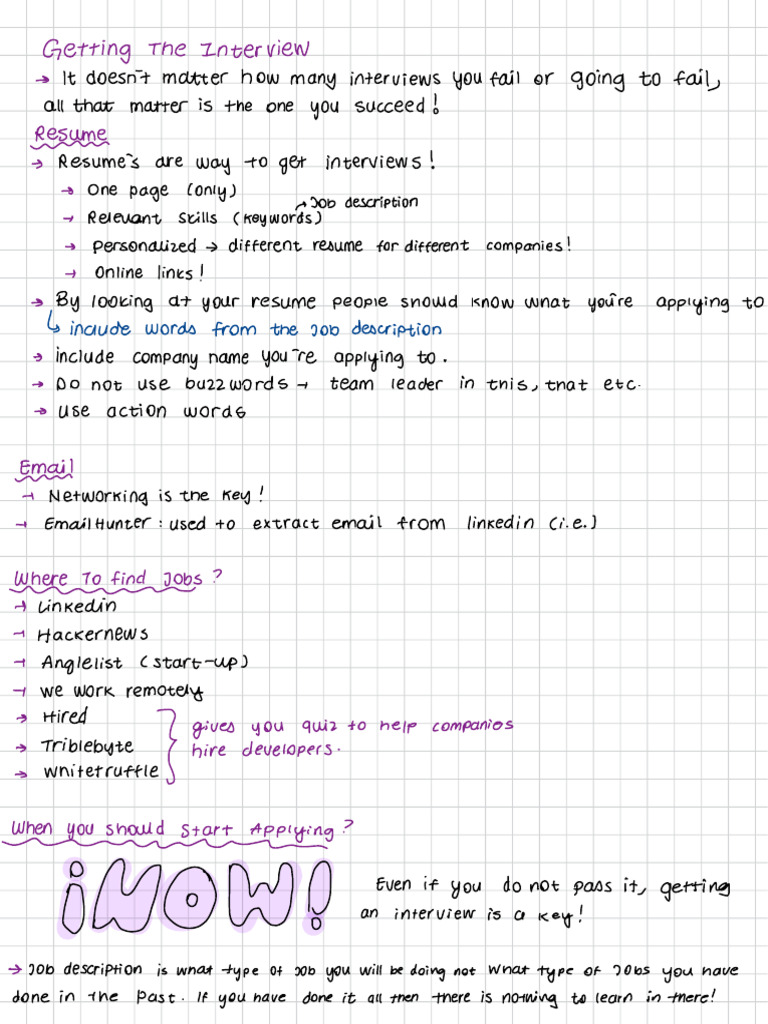 Getting The Interview
→ It doesn't matter how many interviews you fail or going to fail,
all that matter is the one you succeed!
Resume
→ Resume's are way to get interviews!
→ One page (only)
→ Job description
→ Relevant skills (keywords)
→ personalized → different resume for different companies!
→ Online links!
→ By looking at your resume people should know what you're applying to
↳ include words from the Job description
→ include company name you're applying to.
→ Do not use buzzwords → team leader in this, that etc.
→ use action words
Email
→ Networking is the key!
→ Email Hunter: used to extract email from linkedin (i.e.)
Where To find Jobs?
→ Linkedin
→ Hackernews
→ Anglelist (start-up)
→ we work remotely
→ Hired
→ Triblebyte
→ Whitetruffle
gives you quiz to help companies
hire developers.
When you should start Applying?
¡NOW!
Even if you do not pass it, getting
an interview is a key!
→ Job description is what type of job you will be doing not what type of Jobs you have
done in the past. If you have done it all then there is nothing to learn in there!